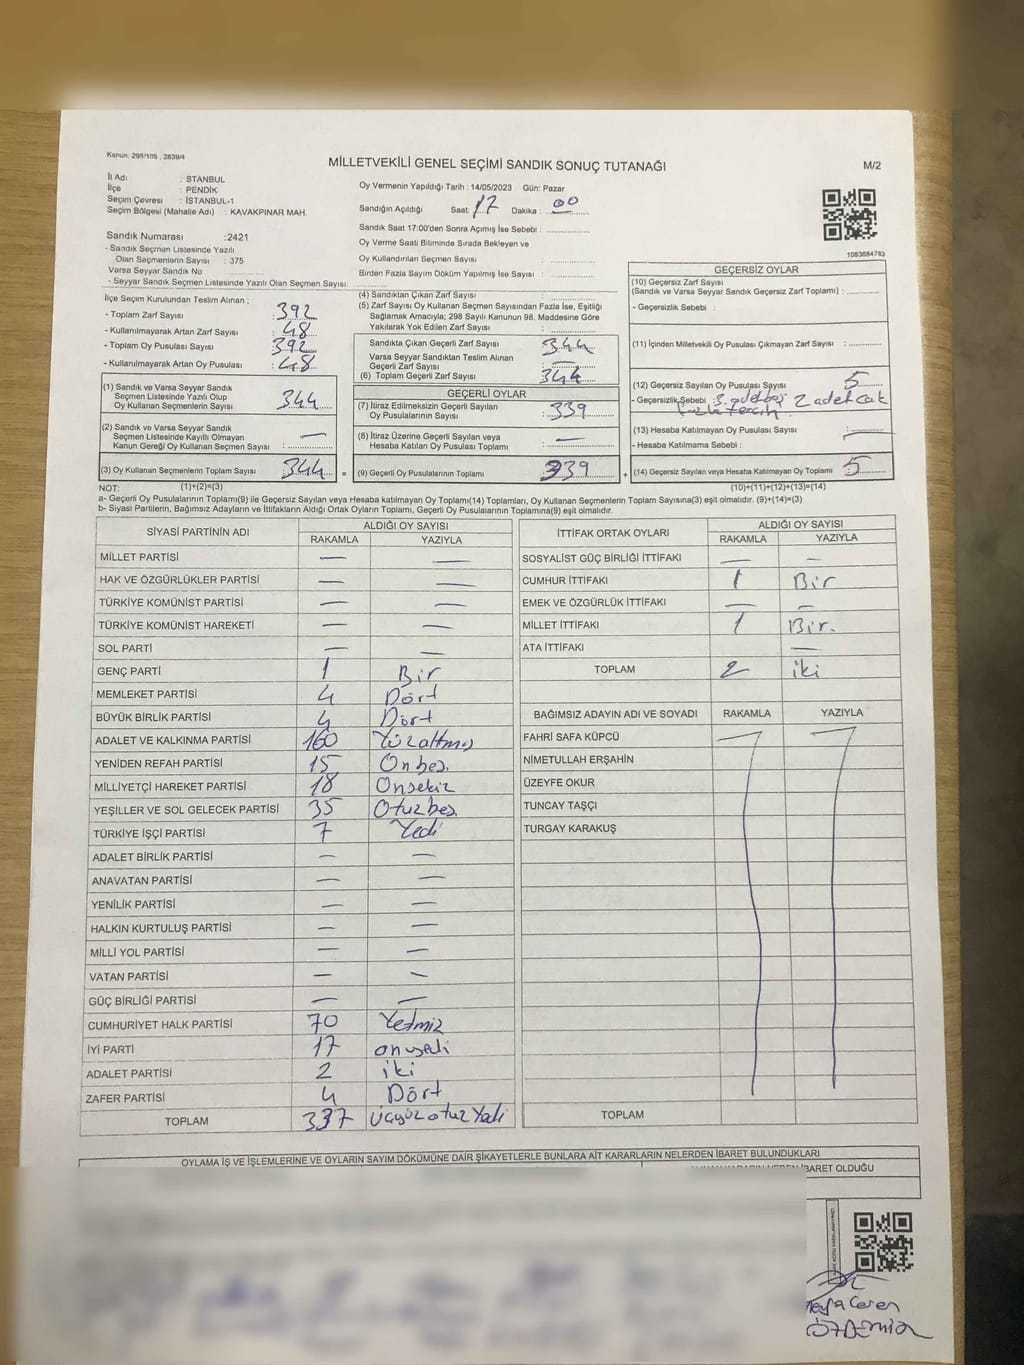 Kanun: 298/105 , 2839/4
MİLLETVEKİLİ GENEL SEÇİMİ SANDIK SONUÇ TUTANAĞI
M/2
İl Adı : STANBUL
İlçe : PENDİK
Seçim Çevresi : İSTANBUL-1
Seçim Bölgesi (Mahalle Adı) : KAVAKPINAR MAH.
Sandık Numarası :2421
- Sandık Seçmen Listesinde Yazılı
Olan Seçmenlerin Sayısı : 375
Varsa Seyyar Sandık No
- Seyyar Sandık Seçmen Listesinde Yazılı Olan Seçmen Sayısı:
Oy Vermenin Yapıldığı Tarih : 14/05/2023 Gün: Pazar
Sandığın Açıldığı Saat: 17 Dakika : 00
Sandık Saat 17:00'den Sonra Açımış İse Sebebi :
Oy Verme Saati Bitiminde Sırada Bekleyen ve
Oy Kullandırılan Seçmen Sayısı :
Birden Fazla Sayım Döküm Yapılmış İse Sayısı :
1083684783
İlçe Seçim Kurulundan Teslim Alınan ;
- Toplam Zarf Sayısı : 392
- Kullanılmayarak Artan Zarf Sayısı : 48
- Toplam Oy Pusulası Sayısı : 392
- Kullanılmayarak Artan Oy Pusulası : 48
(1) Sandık ve Varsa Seyyar Sandık
Seçmen Listesinde Yazılı Olup
Oy Kullanan Seçmenlerin Sayısı : 344
(2) Sandık ve Varsa Seyyar Sandık
Seçmen Listesinde Kayıtlı Olmayan
Kanun Gereği Oy Kullanan Seçmen Sayısı : —
(3) Oy Kullanan Seçmenlerin Toplam Sayısı : 344 =
(4) Sandıktan Çıkan Zarf Sayısı :
(5) Zarf Sayısı Oy Kullanan Seçmen Sayısından Fazla İse, Eşitliği
Sağlamak Amacıyla; 298 Sayılı Kanunun 98. Maddesine Göre
Yakılarak Yok Edilen Zarf Sayısı :
Sandıkta Çıkan Geçerli Zarf Sayısı 344
Varsa Seyyar Sandıktan Teslim Alınan
Geçerli Zarf Sayısı : —
(6) Toplam Geçerli Zarf Sayısı : 344
GEÇERLİ OYLAR
(7) İtiraz Edilmeksizin Geçerli Sayılan
Oy Pusulalarının Sayısı : 339
(8) İtiraz Üzerine Geçerli Sayılan veya
Hesaba Katılan Oy Pusulası Toplamı : —
(9) Geçerli Oy Pusulalarının Toplamı : 339 +
GEÇERSİZ OYLAR
(10) Geçersiz Zarf Sayısı
(Sandık ve Varsa Seyyar Sandık Geçersiz Zarf Toplamı) :
- Geçersizlik Sebebi :
(11) İçinden Milletvekili Oy Pusulası Çıkmayan Zarf Sayısı :
(12) Geçersiz Sayılan Oy Pusulası Sayısı : 5
- Geçersizlik Sebebi : 3 adet boş 2 adet çok
fazla tercih
(13) Hesaba Katılmayan Oy Pusulası Sayısı : —
- Hesaba Katılmama Sebebi :
(14) Geçersiz Sayılan veya Hesaba Katılmayan Oy Toplamı : 5
NOT: (1)+(2)=(3) (10)+(11)+(12)+(13)=(14)
a- Geçerli Oy Pusulalarının Toplamı(9) ile Geçersiz Sayılan veya Hesaba katılmayan Oy Toplamı(14) Toplamları, Oy Kullanan Seçmenlerin Toplam Sayısına(3) eşit olmalıdır. (9)+(14)=(3)
b- Siyasi Partilerin, Bağımsız Adayların ve İttifakların Aldığı Ortak Oyların Toplamı, Geçerli Oy Pusulalarının Toplamına(9) eşit olmalıdır.
SİYASİ PARTİNİN ADI ALDIĞI OY SAYISI
RAKAMLA YAZIYLA
MİLLET PARTİSİ — —
HAK VE ÖZGÜRLÜKLER PARTİSİ — —
TÜRKİYE KOMÜNİST PARTİSİ — —
TÜRKİYE KOMÜNİST HAREKETİ — —
SOL PARTİ — —
GENÇ PARTİ 1 Bir
MEMLEKET PARTİSİ 4 Dört
BÜYÜK BİRLİK PARTİSİ 4 Dört
ADALET VE KALKINMA PARTİSİ 160 Yüzaltmış
YENİDEN REFAH PARTİSİ 15 Onbeş.
MİLLİYETÇİ HAREKET PARTİSİ 18 Onsekiz
YEŞİLLER VE SOL GELECEK PARTİSİ 35 Otuzbeş.
TÜRKİYE İŞÇİ PARTİSİ 7 Yedi
ADALET BİRLİK PARTİSİ — —
ANAVATAN PARTİSİ — —
YENİLİK PARTİSİ — —
HALKIN KURTULUŞ PARTİSİ — —
MİLLİ YOL PARTİSİ — —
VATAN PARTİSİ — —
GÜÇ BİRLİĞİ PARTİSİ — —
CUMHURİYET HALK PARTİSİ 70 Yetmiz
İYİ PARTİ 17 onyedi
ADALET PARTİSİ 2 iki
ZAFER PARTİSİ 4 Dört
TOPLAM 337 Üçyüz otuz Yedi
İTTİFAK ORTAK OYLARI ALDIĞI OY SAYISI
RAKAMLA YAZIYLA
SOSYALİST GÜÇ BİRLİĞİ İTTİFAKI — —
CUMHUR İTTİFAKI 1 Bir
EMEK VE ÖZGÜRLÜK İTTİFAKI — —
MİLLET İTTİFAKI 1 Bir.
ATA İTTİFAKI —
TOPLAM 2 iki
BAĞIMSIZ ADAYIN ADI VE SOYADI RAKAMLA YAZIYLA
FAHRİ SAFA KÜPCÜ
NİMETULLAH ERŞAHİN
ÜZEYFE OKUR
TUNCAY TAŞÇI
TURGAY KARAKUŞ
TOPLAM
OYLAMA İŞ VE İŞLEMLERİNE VE OYLARIN SAYIM DÖKÜMÜNE DAİR ŞİKAYETLERLE BUNLARA AİT KARARLARIN NELERDEN İBARET BULUNDUKLARI
İBARET OLDUĞU
Ceren
ÖZDEMİR